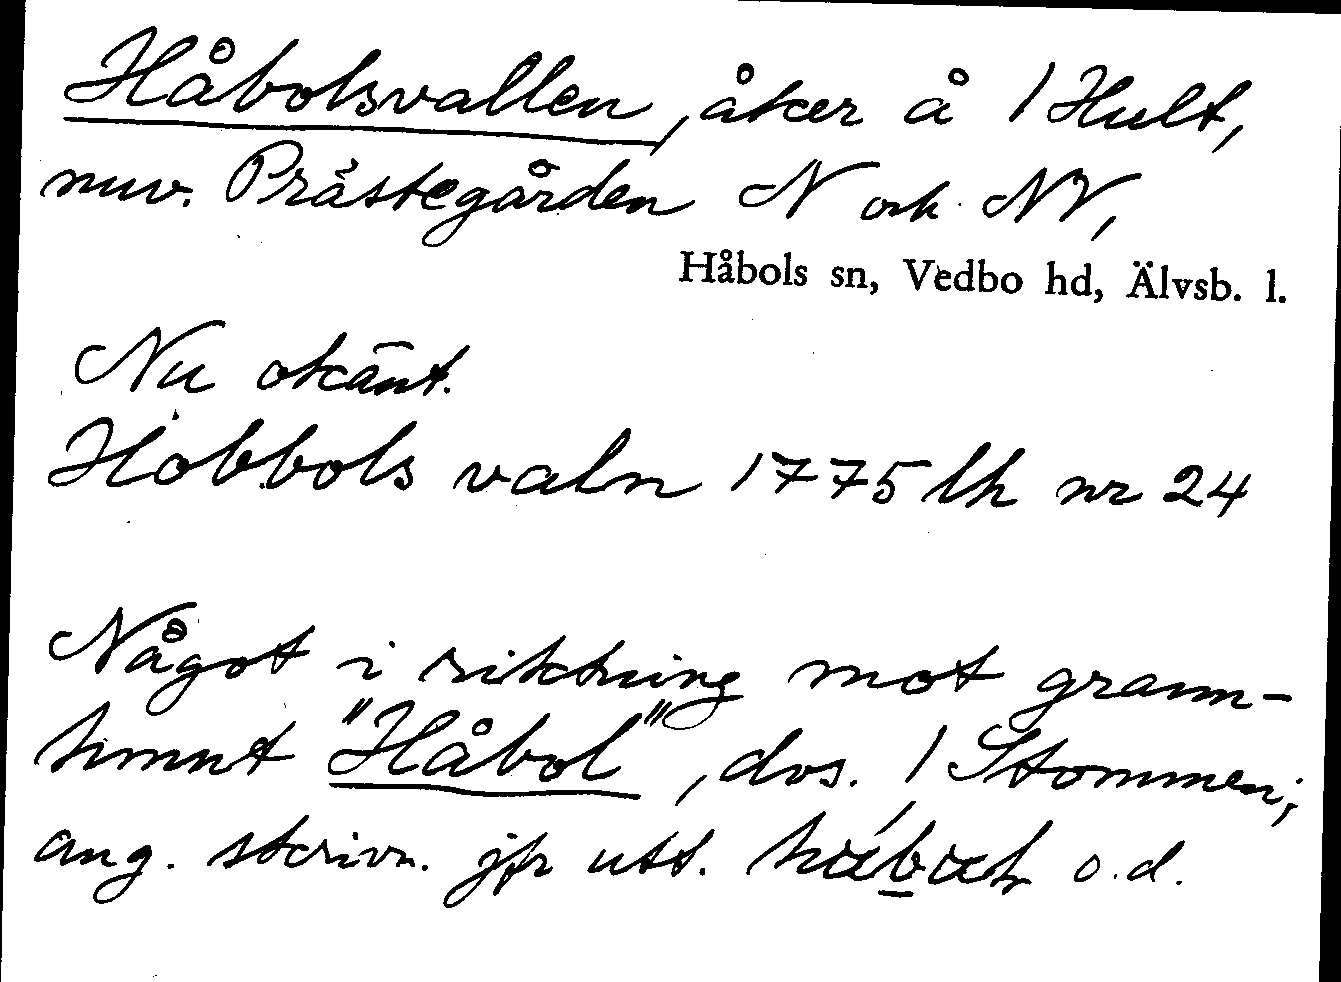 Håbolsvallen, åker å 1 Hult,
nuv. Prästegården N och NV,
Håbols sn, Vedbo hd, Älvsb. l.
Nu okänt.
Hobbols valn 1775 lh nr 24
Något i riktning mot grann-
hmnt "Håbol", dvs. 1 Stommen;
ang. skrivn. jfr utt. o.d.